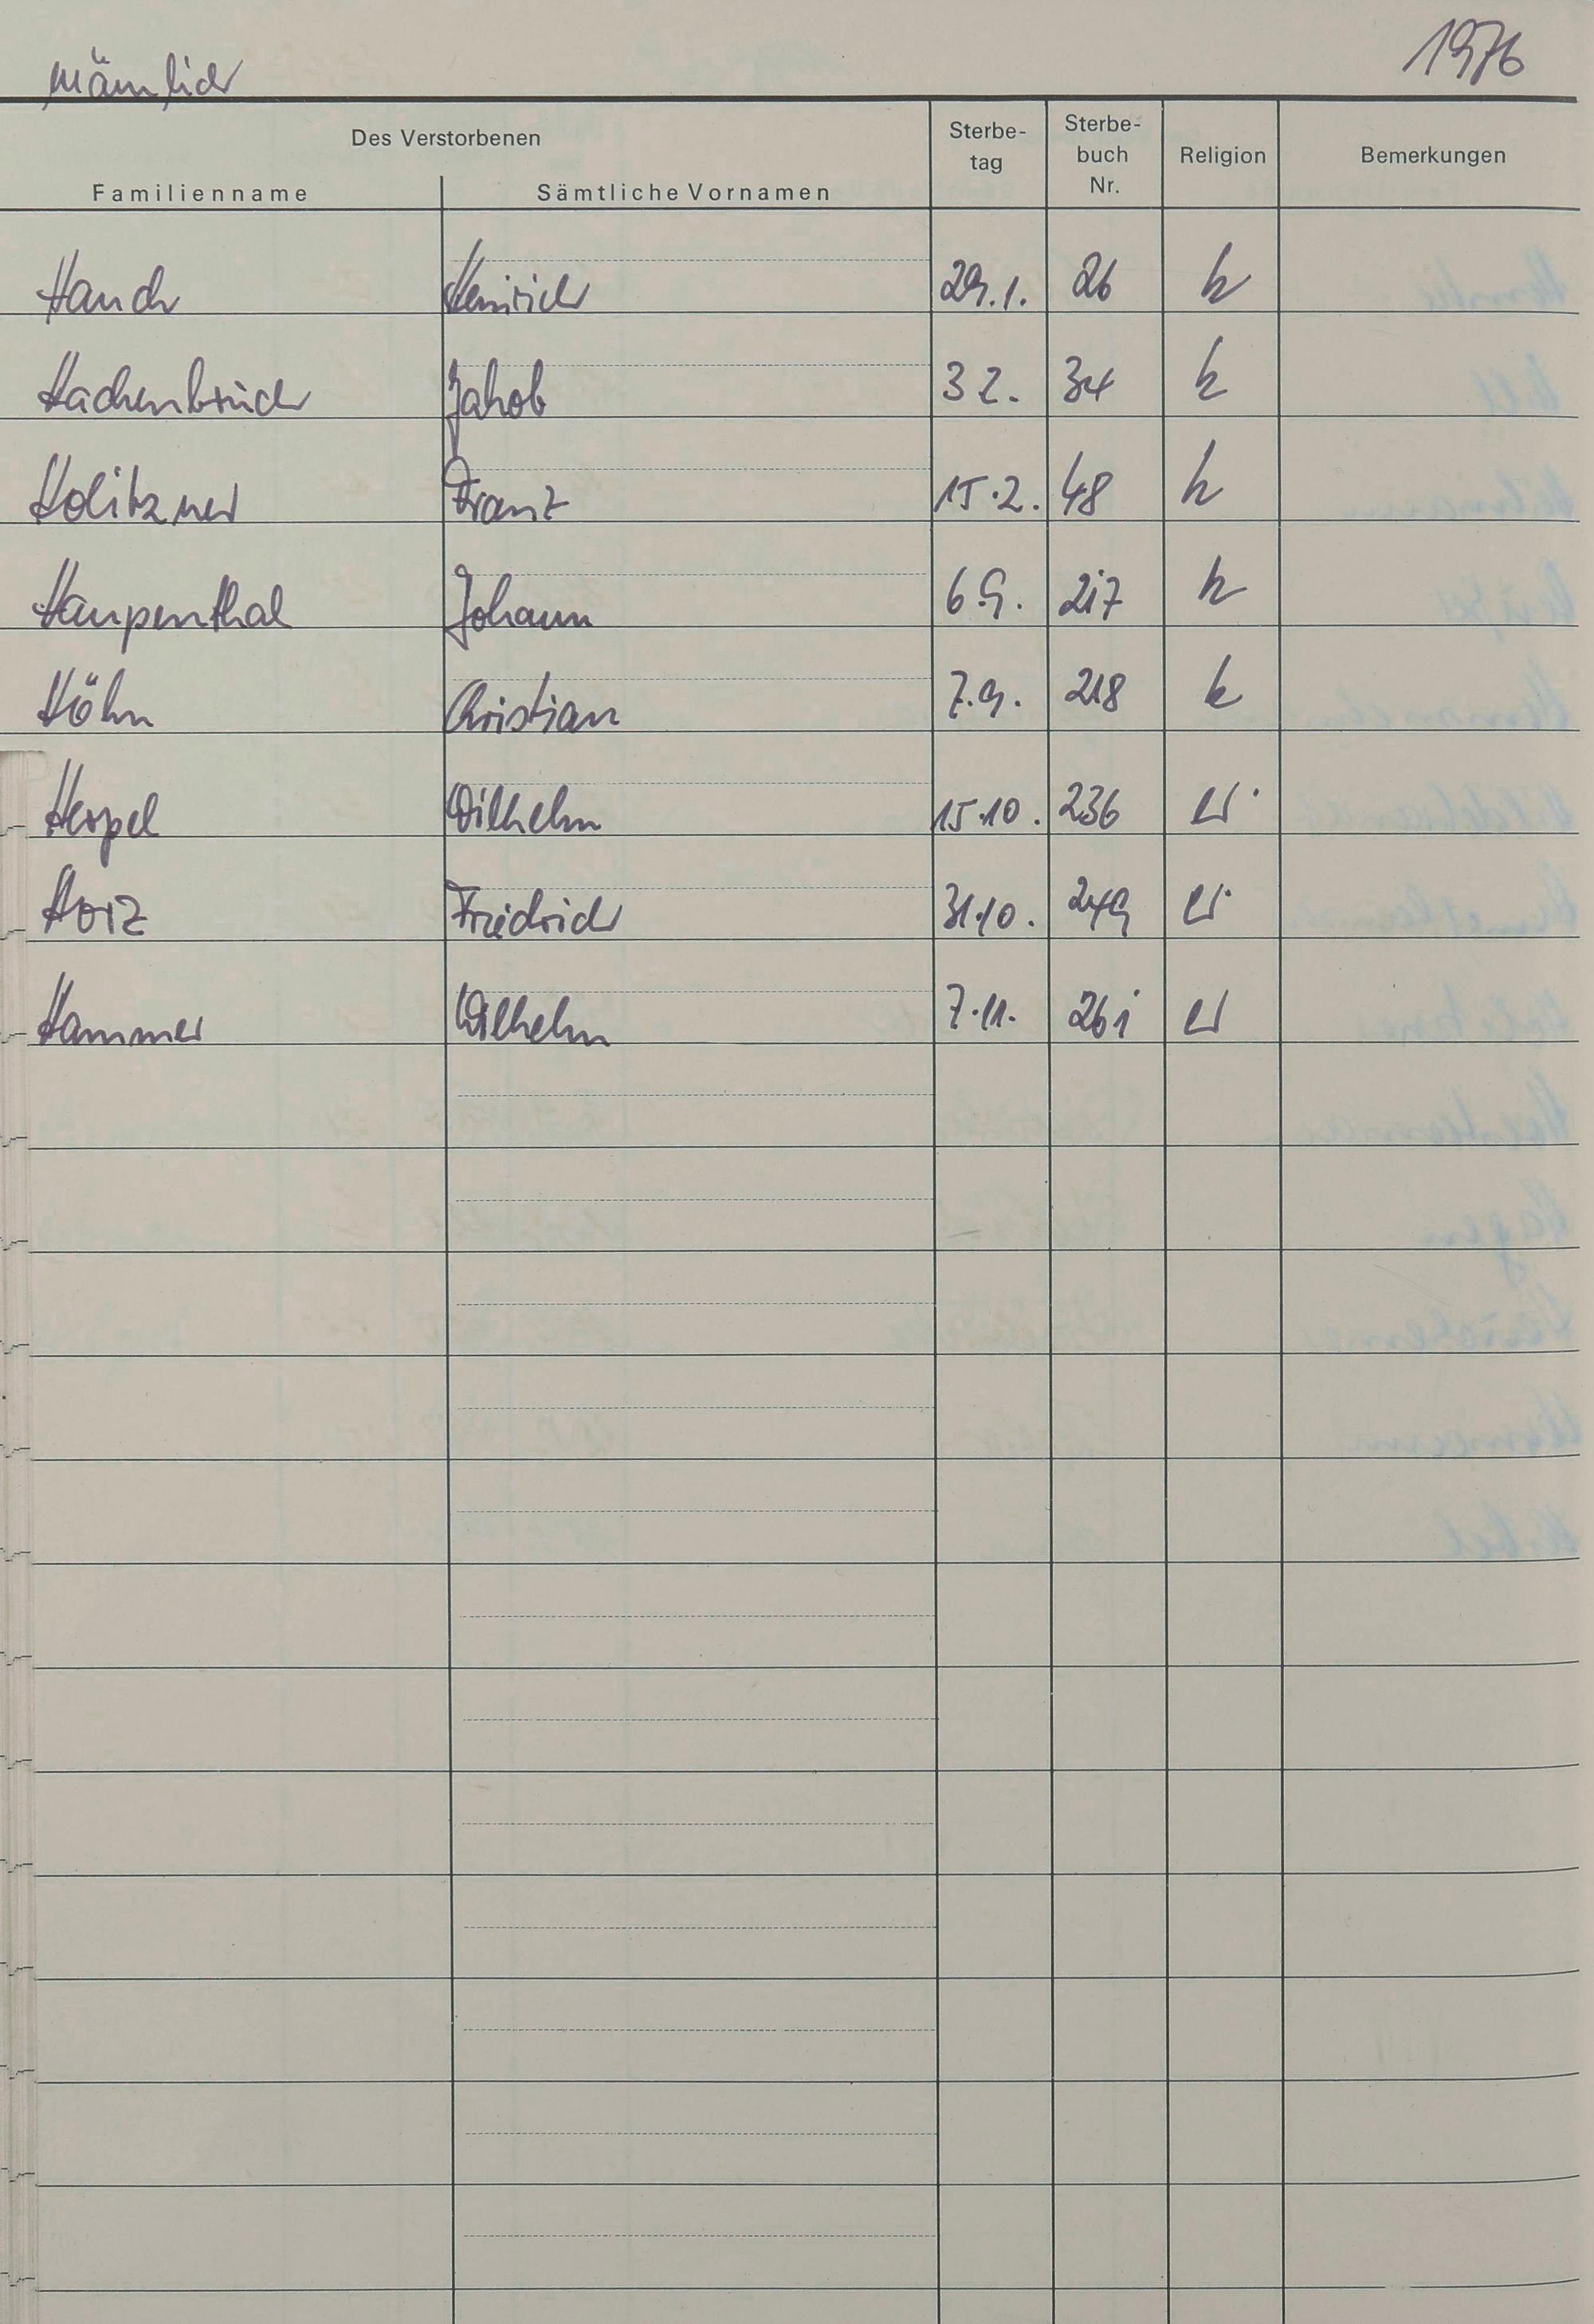 männlich 1976
Des Verstorbenen Sterbe- Sterbe- Religion Bemerkungen
tag buch
Familienname Sämtliche Vornamen Nr.
Hauch Heinrich 29.1. 26 k
Hachenbruch Jakob 3 2. 34 k
Holitzner Franz 15.2. 48 k
Haupenthal Johann 6.9. 217 k
Höhn Christian 7.9. 218 k
Herpel Wilhelm 15.10. 236 ev.
Horz Friedrich 31.10. 249 ev.
Hammer Wilhelm 7.11. 261 ev